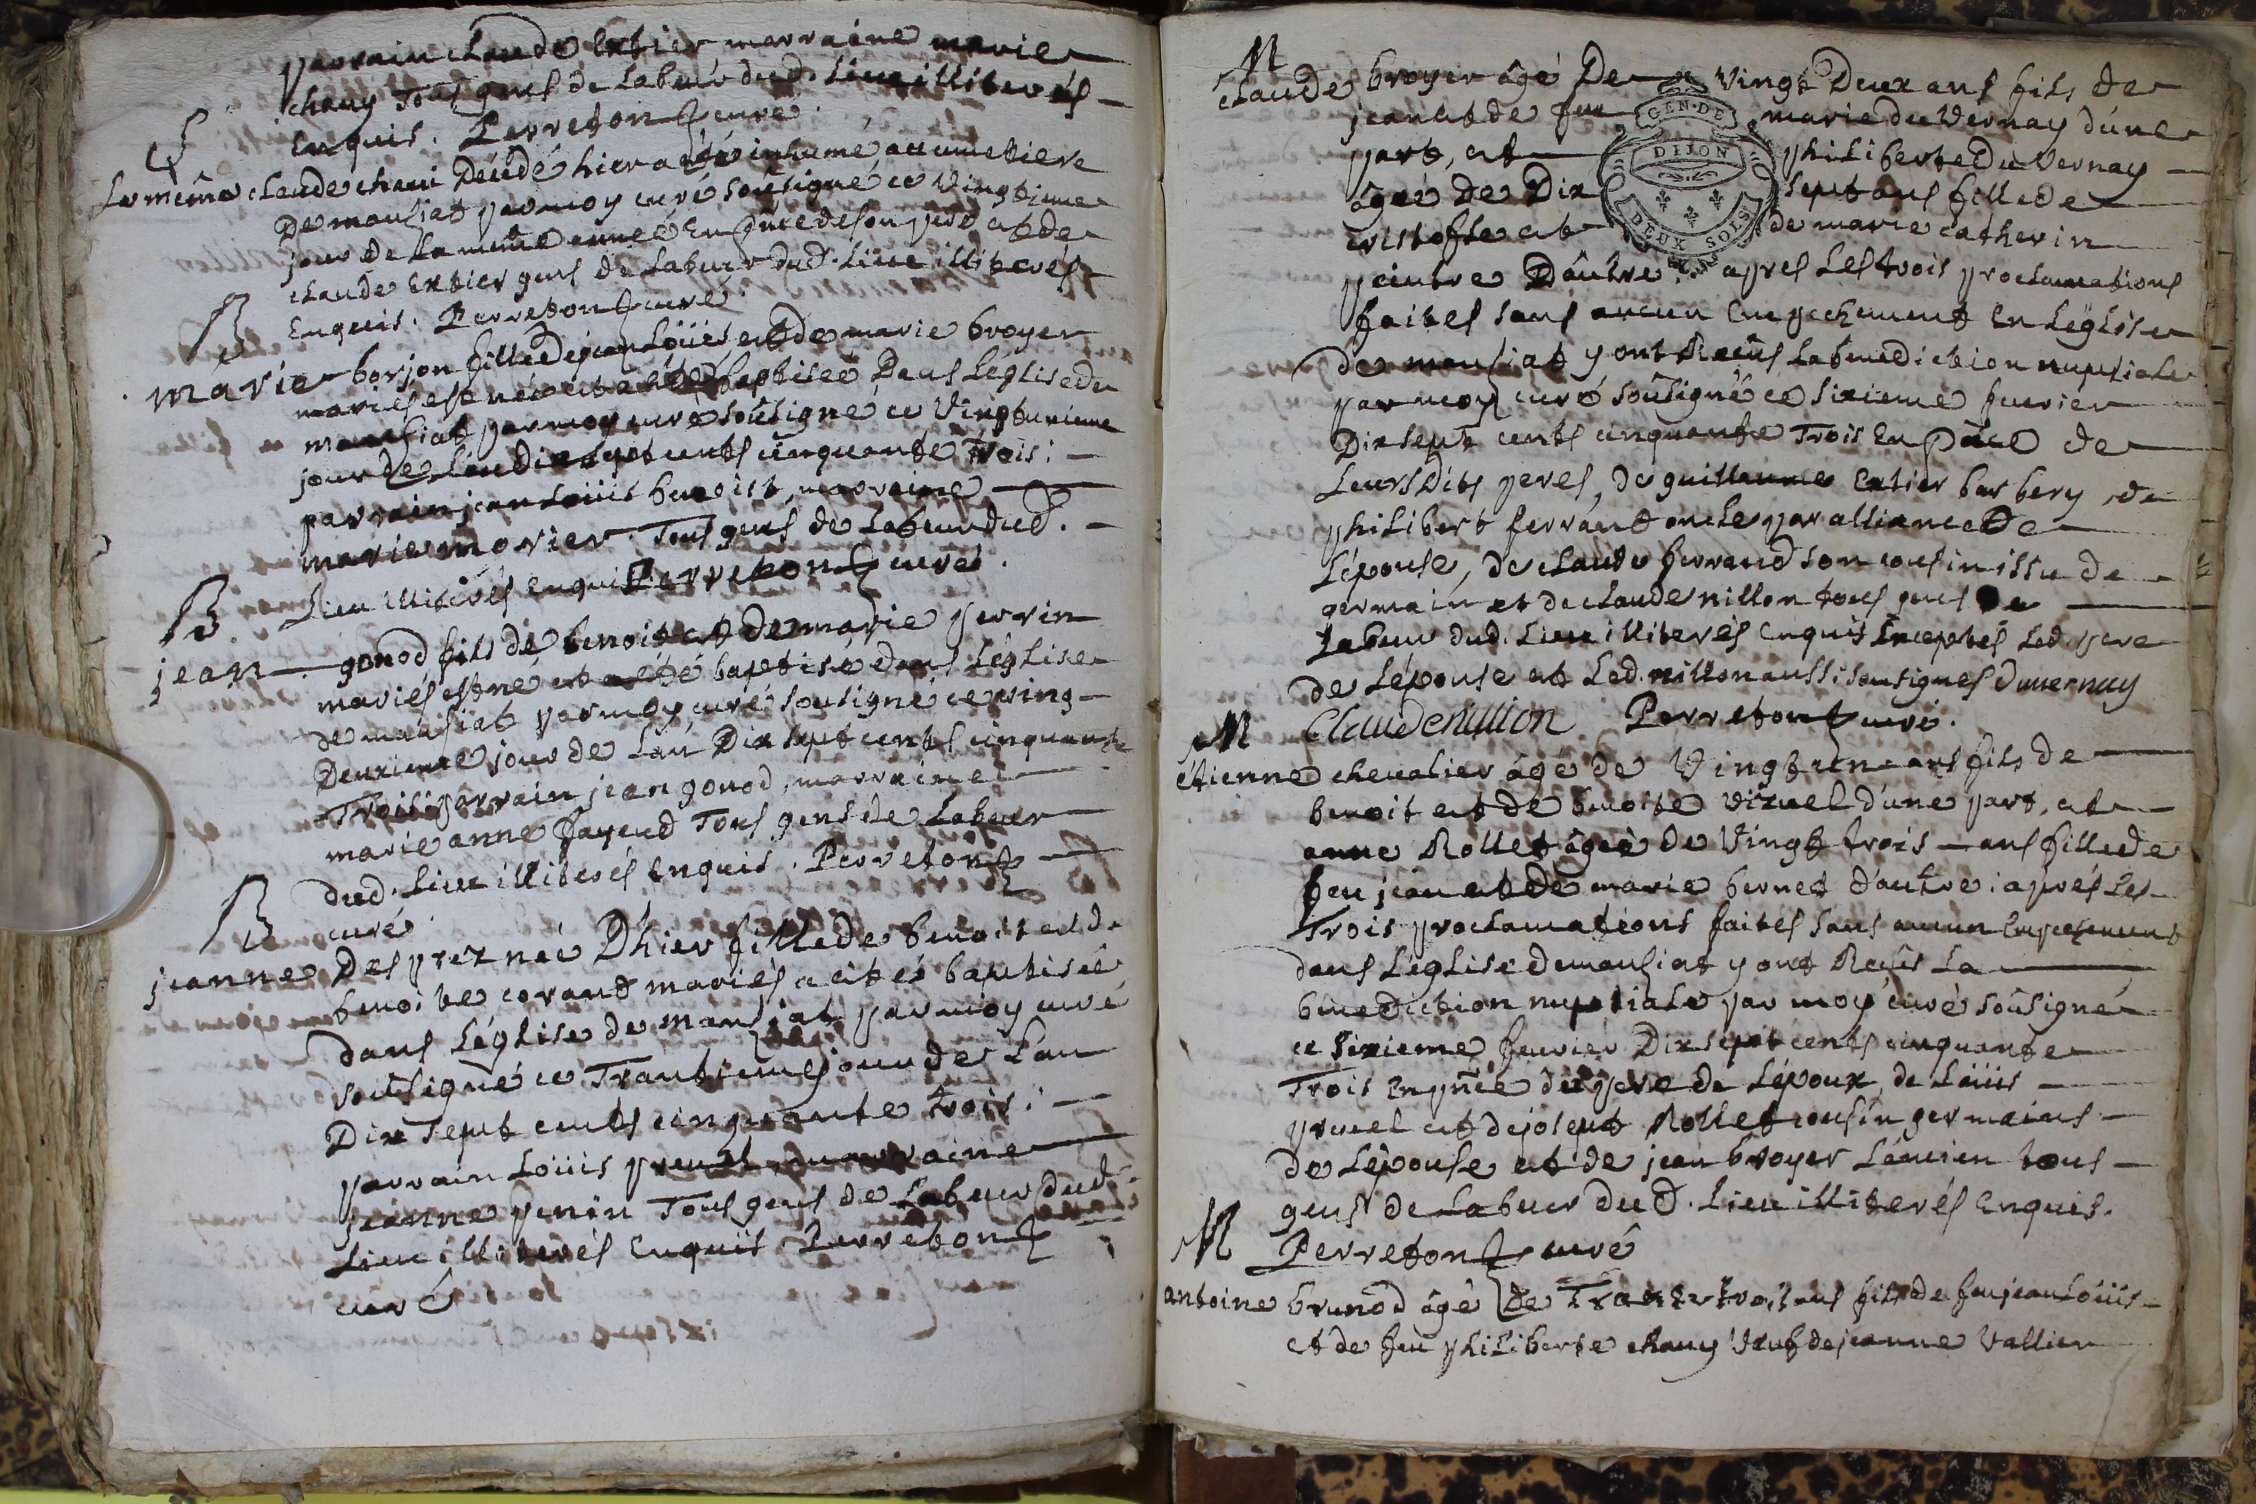 parrain claude Extier marraine marie
chany Tous gens de Labeur dud. Lieu illiterés
Enquis. Perreton curé
S
Le même claude chani Décédé hier a été inhumé au cimetiere
De mansiat par moy curé soûsigné ce Vingtieme
jour de La même année En pnce de son pere et de
claude Extier gens de Labeur dud. Lieu illiterés
Enquis. Perreton curé
B
marie borjon fille de jean Loüis et de marie broyer
mariés est née et a été baptisée Dans L'église de
mansiat par moy curé soûsigné ce Vingtunieme
jour de L'an dix sept cents cinquante Trois :
parrain jean Loüis benoist, marraine
marie morier Tous gens de Labeur dud.
Lieu illiterés enquis Perreton curé.
B
jean gonod fils de benoit et de marie perrin
mariés est né et a été baptisé dans L'église
de mansiat par moy curé sousigné ce ving
Deuxieme jour de L'an Dix sept cents cinquante
Trois parrain jean gonod, marraine
marie anne payend Tous gens de Labeur
dud. Lieu illiterés Enquis. Perreton
curé
B
jeanne Desprez née D'hier fille de benoit et de
benoite corand mariés a été baptisée
dans L'église de mansiat par moy curé
soûsigné ce Trantiemes jour de L'an
Dix sept cents cinquante trois :
parrain Loüis pruel, marraine
jeanne penin Tous gens de Labeur dud.
Lieu illiterés Enquis Perreton
curé
M
claude broyer âgé De Vingt Deux ans fils de
jean et de feue marie du Vernay d'une
part, et philiberte Du Vernay
âgée De Dix sept ans fille de
cristofle et de marie catherin
peintre D'autre : apres Les trois proclamations
faites sans aucun Empechement En L'église
de mansiat y ont Recûs La benediction nuptiale
par moy curé soûsigné ce sixieme feurier
Dix sept cents cinquante Trois En pnce de
Leurs Dits peres, de guillaume Extier barbery, de
philibert ferrand oncle par alliance De
L'épouse, de claude ferrand son cousin issu de
germain et de claude nillon tous gens De
Labeur dud. Lieu illiterés enquis Exceptés Led. pere
de L'épouse et Led. nillon aussi sousignes Duuernay
Claude nillion Perreton curé.
M
étienne chevalier âgé de Vingt un ans fils de
benoit et de benoite vizuel d'une part, et
anne Rollet âgée De Vingt trois ans fille de
feu jean et de marie bernet d'autre : aprés Les
Trois proclamations faites sans aucun Empechement
dans L'église de mansiat y ont Recûs La
benediction nuptiale par moy curé soûsigné
ce sixieme feurier Dix sept cents cinquante
Trois En pnce du pere de L'époux, de Loüis
pruel et de joseph Rollet cousin germains
de L'épouse et de jean broyer L'ancien tous
gens de Labeur Du D. Lieu illiterés Enquis.
Perreton curé
M
antoine brunod âgé De Trante trois ans fils de feu jean Loüis
et de feu philiberte chany Veuf de jeanne Vallier
GEN. DE
DIJON
DEUX SOLS